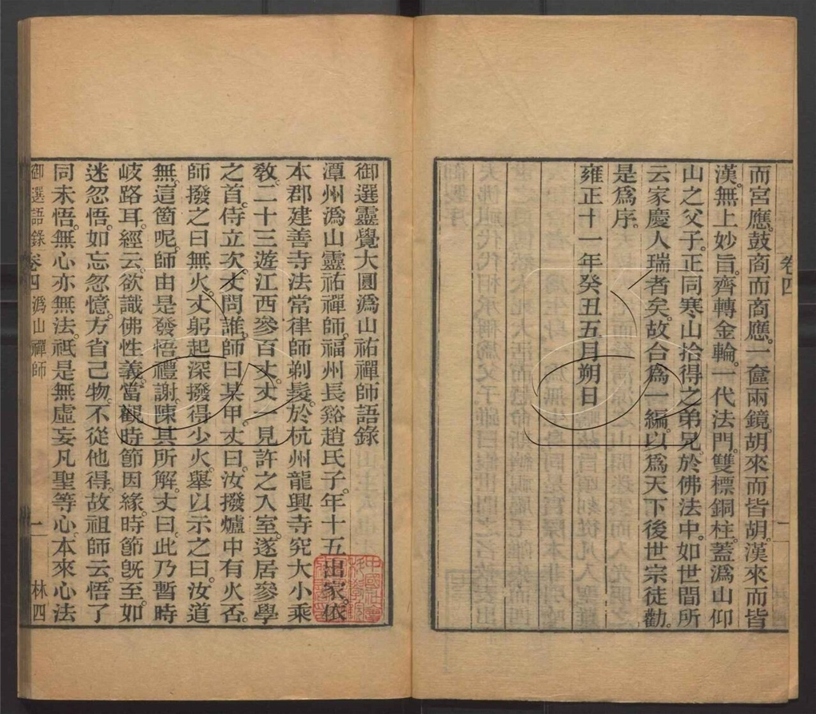 卷四
而宮應。鼓商而商應。一奩兩鏡。胡來而皆胡。漢來而皆
漢。無上妙旨。齊轉金輪。一代法門。雙標銅柱。蓋溈山仰
山之父子。正同寒山拾得之弟兄。於佛法中。如世間所
云家慶人瑞者矣。故合為一編。以為天下後世宗徒勸。
是為序。
雍正十一年癸丑五月朔日
御選靈覺大圓溈山祐禪師語錄
潭州溈山靈祐禪師。福州長谿趙氏子。年十五出家。依
本郡建善寺法常律師剃髮。於杭州龍興寺究大小乘
教。二十三遊江西參百丈。丈一見許之入室。遂居參學
之首。侍立次。丈問誰。師曰某甲。丈曰。汝撥爐中有火否。
師撥之曰無火。丈躬起深撥得少火。舉以示之曰。汝道
無。這箇呢。師由是發悟禮謝。陳其所解。丈曰。此乃暫時
岐路耳。經云。欲識佛性義。當觀時節因緣。時節既至。如
迷忽悟。如忘忽憶。方省己物。不從他得。故祖師云。悟了
同未悟。無心亦無法。祇是無虛妄凡聖等心。本來心法
御選語錄 卷四 溈山禪師 一 林四